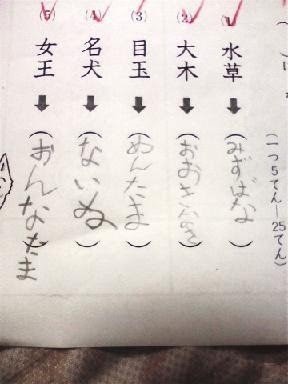 (一つ5てん—25てん)
(1) 水草 ➡ (みずばな)
(2) 大木 ➡ (おおきなき)
(3) 目玉 ➡ (めんたま)
(4) 名犬 ➡ (ないぬ)
(5) 女王 ➡ (おんなたま)